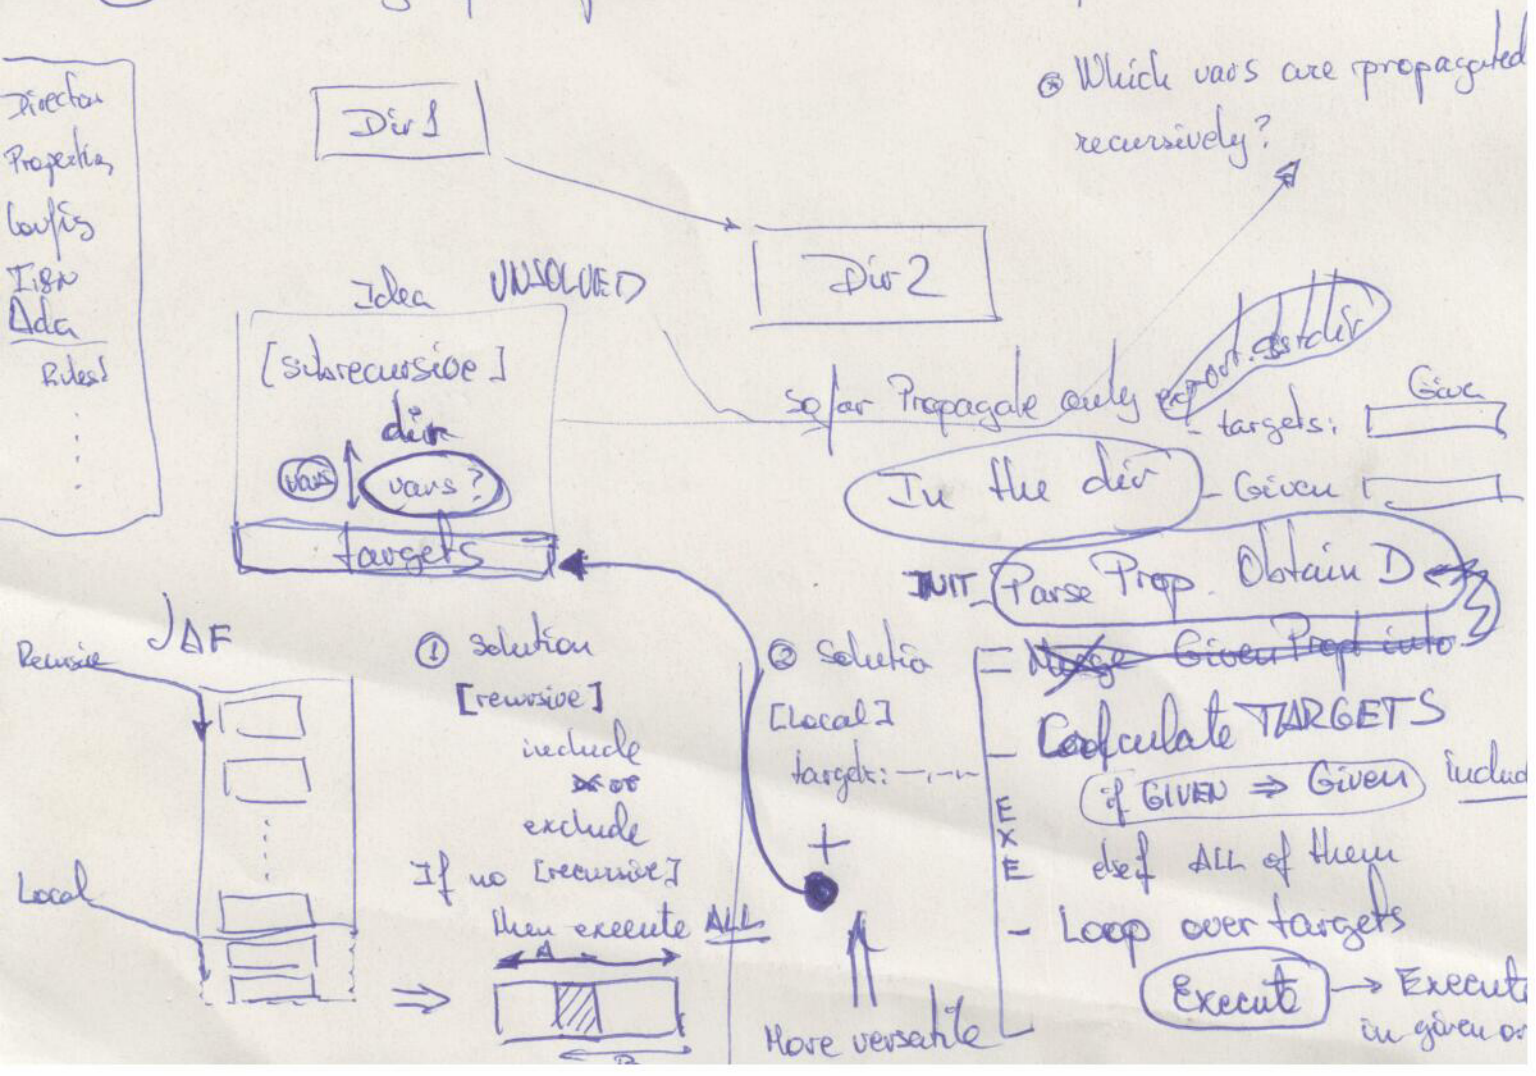 Director
Properties
Config
I18N
Ada
Rules!
Dir 1
Dir 2
* Which vars are propagated
recursively?
Idea UNSOLVED
[subrecursive]
dir
vars
vars?
targets
So far Propagate only export.
- targets:
Give
In the dir
- Given
INIT
Parse Prop. Obtain D
Merge Given Prop into
Calculate TARGETS
if GIVEN ⇒ Given
includ
else ALL of them
EXE
- Loop over targets
Execute → Execute
in given or
JAF
Recursive
Local
① Solution
[recursive]
include
or
exclude
If no [recursive]
then execute ALL
A
B
② Solutio
[Local]
target: -.-.-
+
More versatile